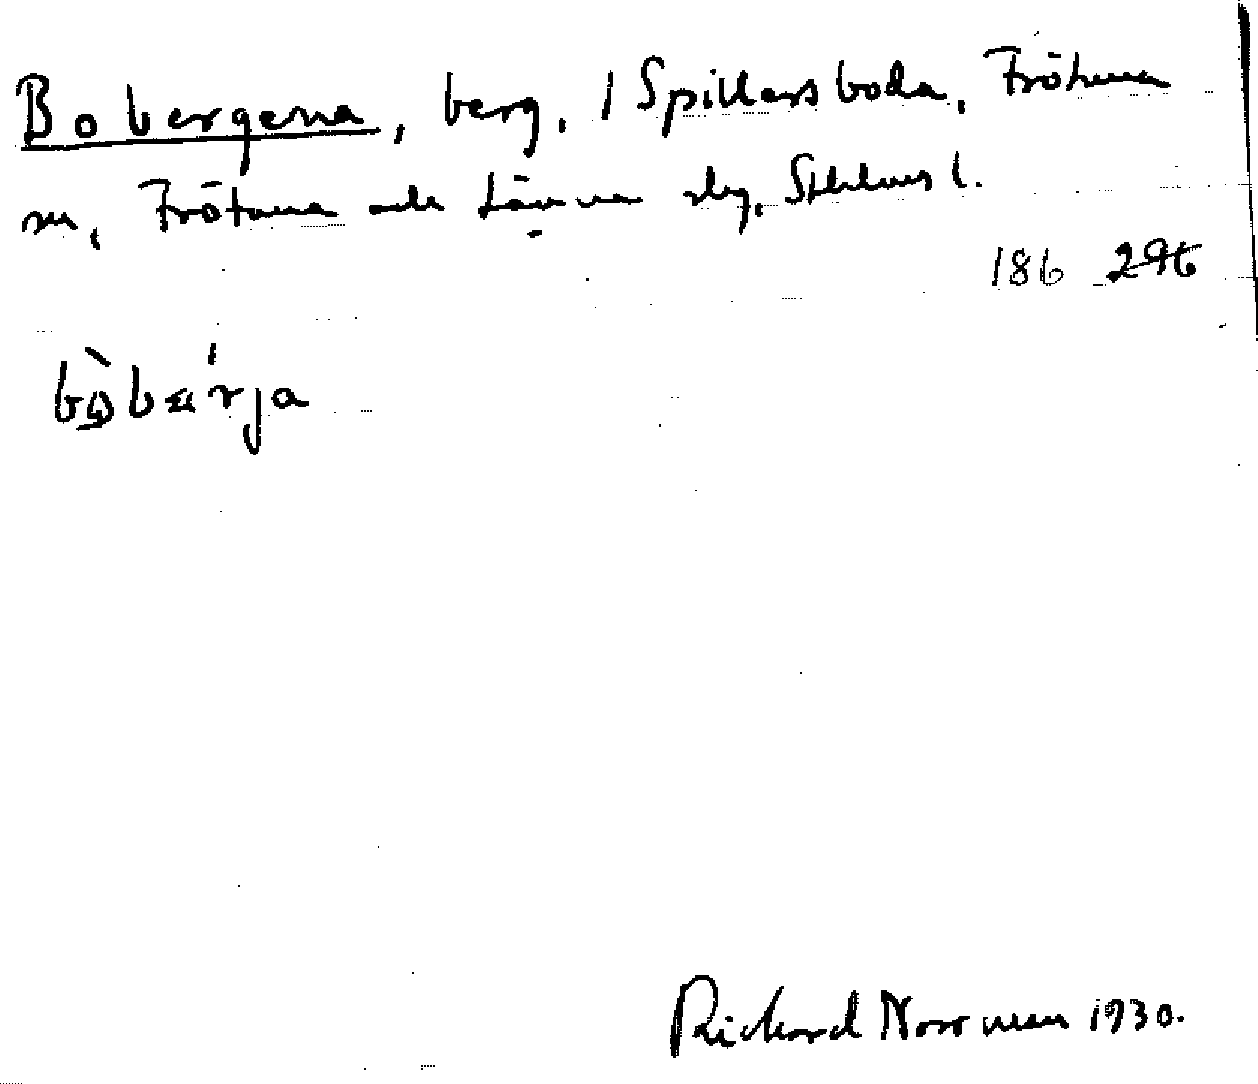 Bobergena, berg, 1 Spillersboda, Frötuna
sn, Frötuna och Länna slg, Sthlms l.
186 296
bò̱bæ̀rja
Richard Norrman 1930.